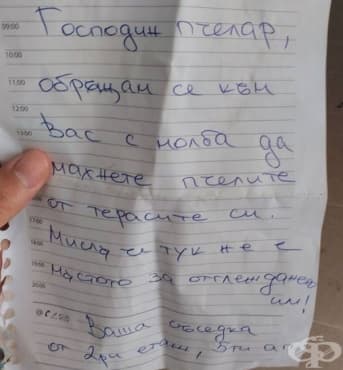 09:00 Господин пчелар,
10:00
11:00 обръщам се към
12:00
13:00 Вас с молба да
махнете пчелите
от терасите си.
17:00
18:00 Мисля че тук не е
19:00 мястото за отглеждането
20:00 им!
Ваша съседка
от 2ри етаж, 5ти ап